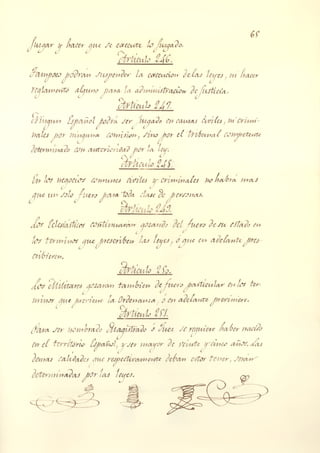 65
juzgar y hacer que se execute lo juzgado.
Artículo 246.
Tampoco podrán suspender la execucion de las leyes, ni hacer
reglamento alguno para la administracion de justicia.
Artículo 247.
Ningun Español podrá ser juzgado en causas civiles, ni crimi-
nales por ninguna comision, sino por el tribunal competente
determinado con anterioridad por la ley.
Artículo 248.
En los negocios comunes civiles y criminales no habrá mas
que un solo fuero para toda clase de personas.
Artículo 249.
Los Eclesiásticos continuarán gozando del fuero de su estado en
los terminos que prescriben las leyes, ó que en adelante pres-
cribieren.
Artículo 250.
Los Militares gozarán tambien de fuero particular en los ter-
minos que previene la Ordenanza, ó en adelante previniere.
Artículo 251.
Para ser nombrado Magistrado ó Juez se requiere haber nacido
en el territorio Español, y ser mayor de veinte y cinco años. Las
demas calidades que respectivamente deban estos tener, serán
determinadas por las leyes.